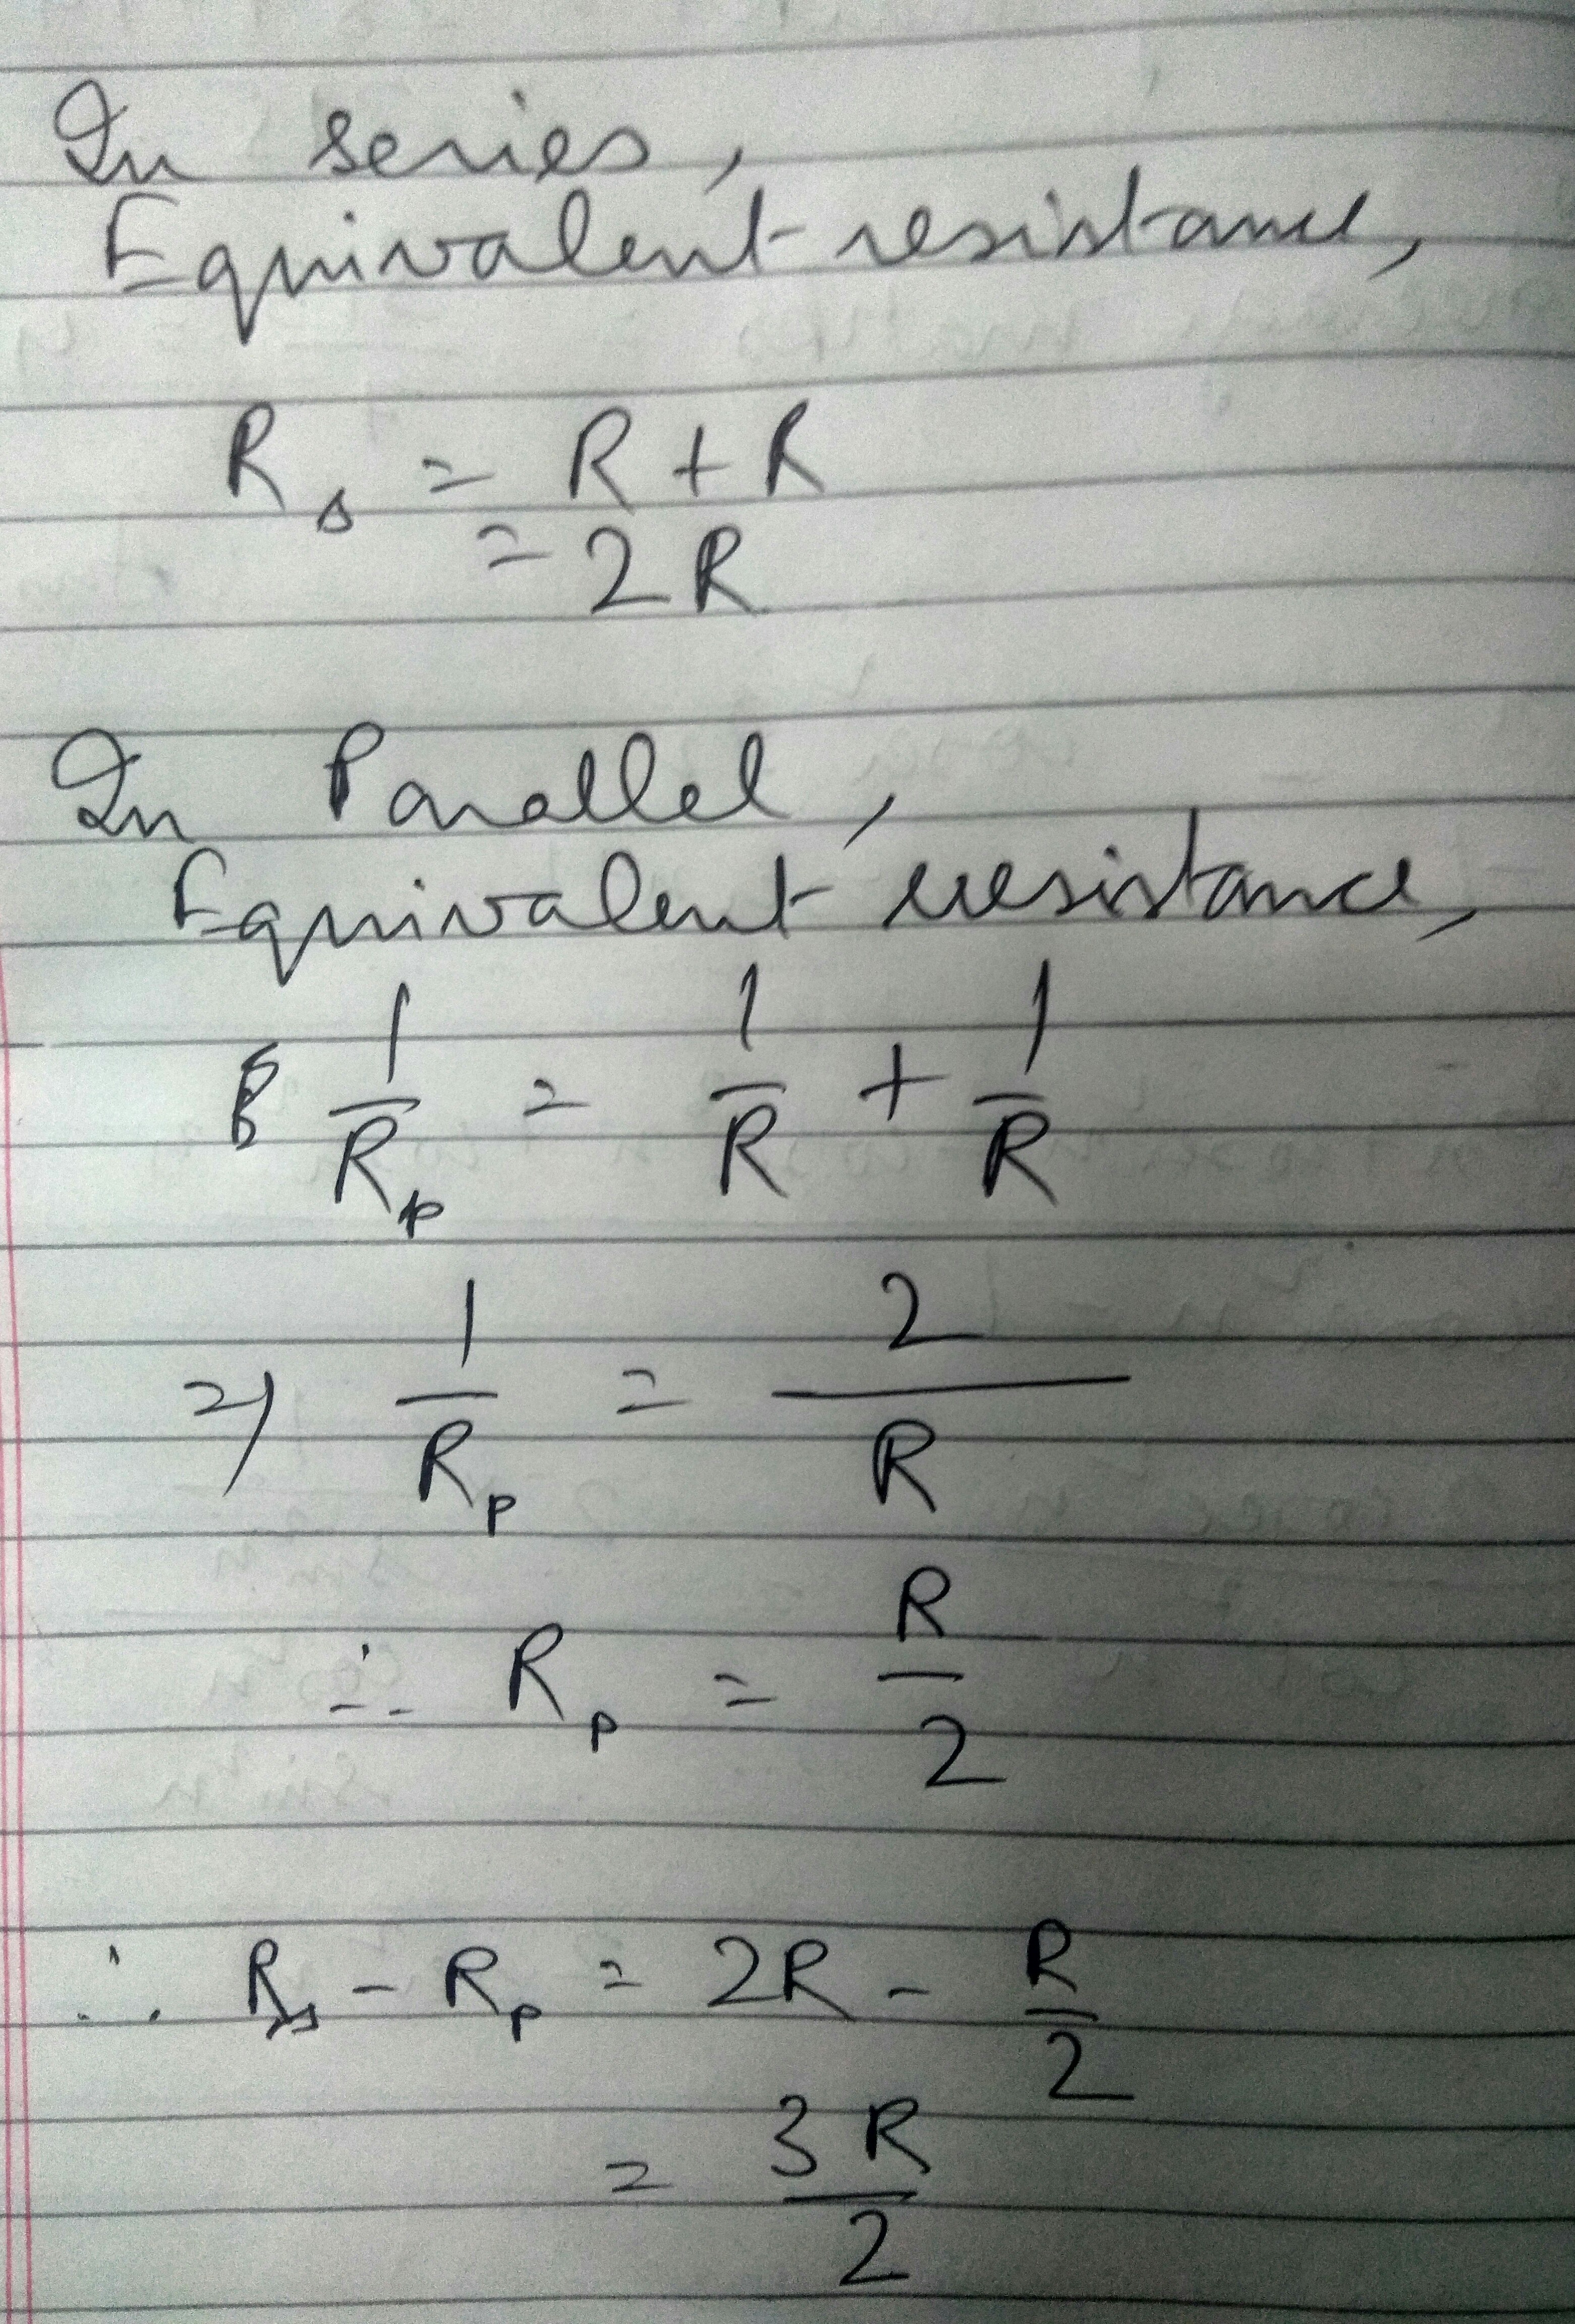 In series,
Equivalent resistance,
Rs = R + R
= 2R
In Parallel,
Equivalent resistance,
1/Rp = 1/R + 1/R
=) 1/Rp = 2/R
∴ Rp = R/2
∴ Rs - Rp = 2R - R/2
= 3R/2